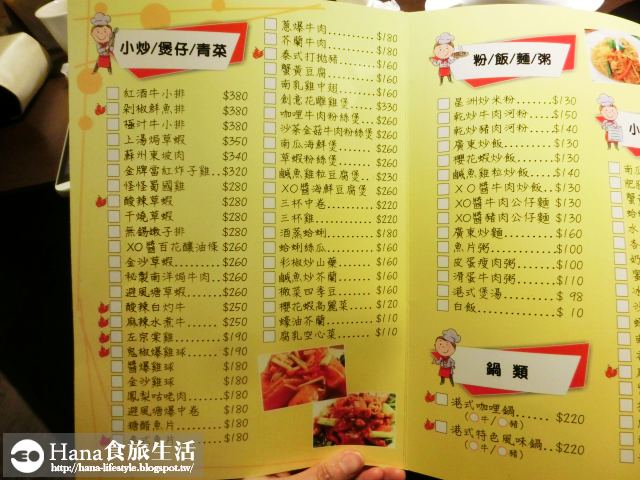 小炒/煲仔/青菜
紅酒牛小排 $380
剁椒鮮魚排 $380
極汁牛小排 $380
上湯焗草蝦 $350
蘇州東坡肉 $340
金牌當紅炸子雞 $320
怪怪蜀國雞 $280
酸辣草蝦 $280
干燒草蝦 $280
無錫嫩子排 $280
XO醬百花釀油條 $260
金沙草蝦 $260
秘製南洋焗牛肉 $260
避風塘草蝦 $260
酸辣白灼牛 $250
麻辣水煮牛 $250
左宗棠雞 $190
鬼椒爆雞球 $190
醬爆雞球 $180
金沙雞球 $180
鳳梨咕咾肉 $180
避風塘爆中卷 $180
糖醋魚片 $180
$180
蔥爆牛肉 $180
芥蘭牛肉 $180
泰式打拋豬 $160
蟹黃豆腐 $160
南乳雞中翅 $160
創意花雕雞煲 $330
咖哩牛肉粉絲煲 $260
沙茶金菇牛肉粉絲煲 $260
南瓜海鮮煲 $260
草蝦粉絲煲 $260
鹹魚雞粒豆腐煲 $230
XO醬海鮮豆腐煲 $260
三杯中卷 $220
三杯雞 $220
酒蒸蛤蜊 $180
蛤蜊絲瓜 $160
彩椒炒山藥 $160
鹹魚炒芥蘭 $160
欖菜四季豆 $160
櫻花蝦高麗菜 $120
蠔油芥蘭 $110
腐乳空心菜 $110
粉/飯/麵/粥
星洲炒米粉 $130
乾炒牛肉河粉 $150
乾炒豬肉河粉 $140
廣東炒飯 $130
櫻花蝦炒飯 $130
鹹魚雞粒炒飯 $140
XO醬牛肉炒飯 $130
XO醬牛肉公仔麵 $130
XO醬豬肉公仔麵 $130
廣東炒麵 $160
魚片粥 $100
皮蛋瘦肉粥 $100
滑蛋牛肉粥 $110
港式煲湯 $ 98
白飯 $ 10
鍋 類
港式咖哩鍋 $220
(○牛/○豬)
港式特色風味鍋 $220
(○牛/○豬)
小
南瓜
Hana食旅生活
http://hana-lifestyle.blogspot.tw/